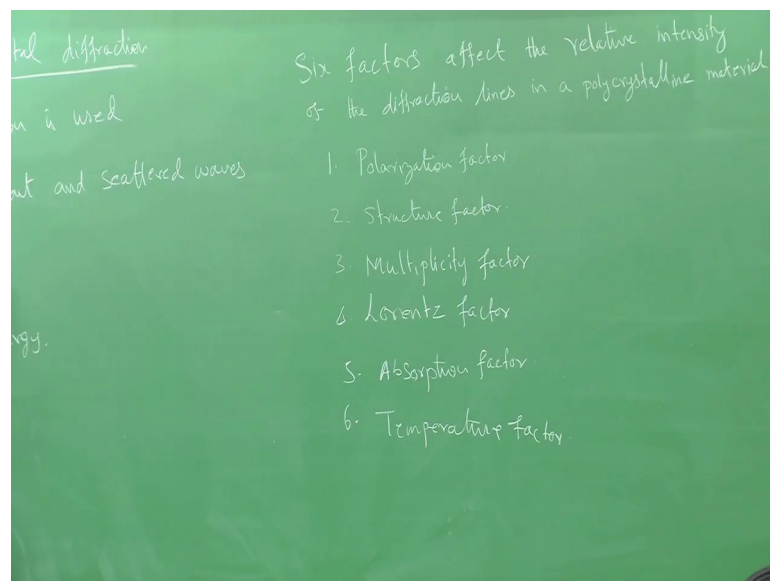 tal diffraction
on is used
and scattered waves
rgy.
Six factors affect the relative intensity
of the diffraction lines in a polycrystalline material
1. Polarization factor
2. Structure factor.
3. Multiplicity factor
4. Lorentz factor
5. Absorption factor
6. Temperature factor